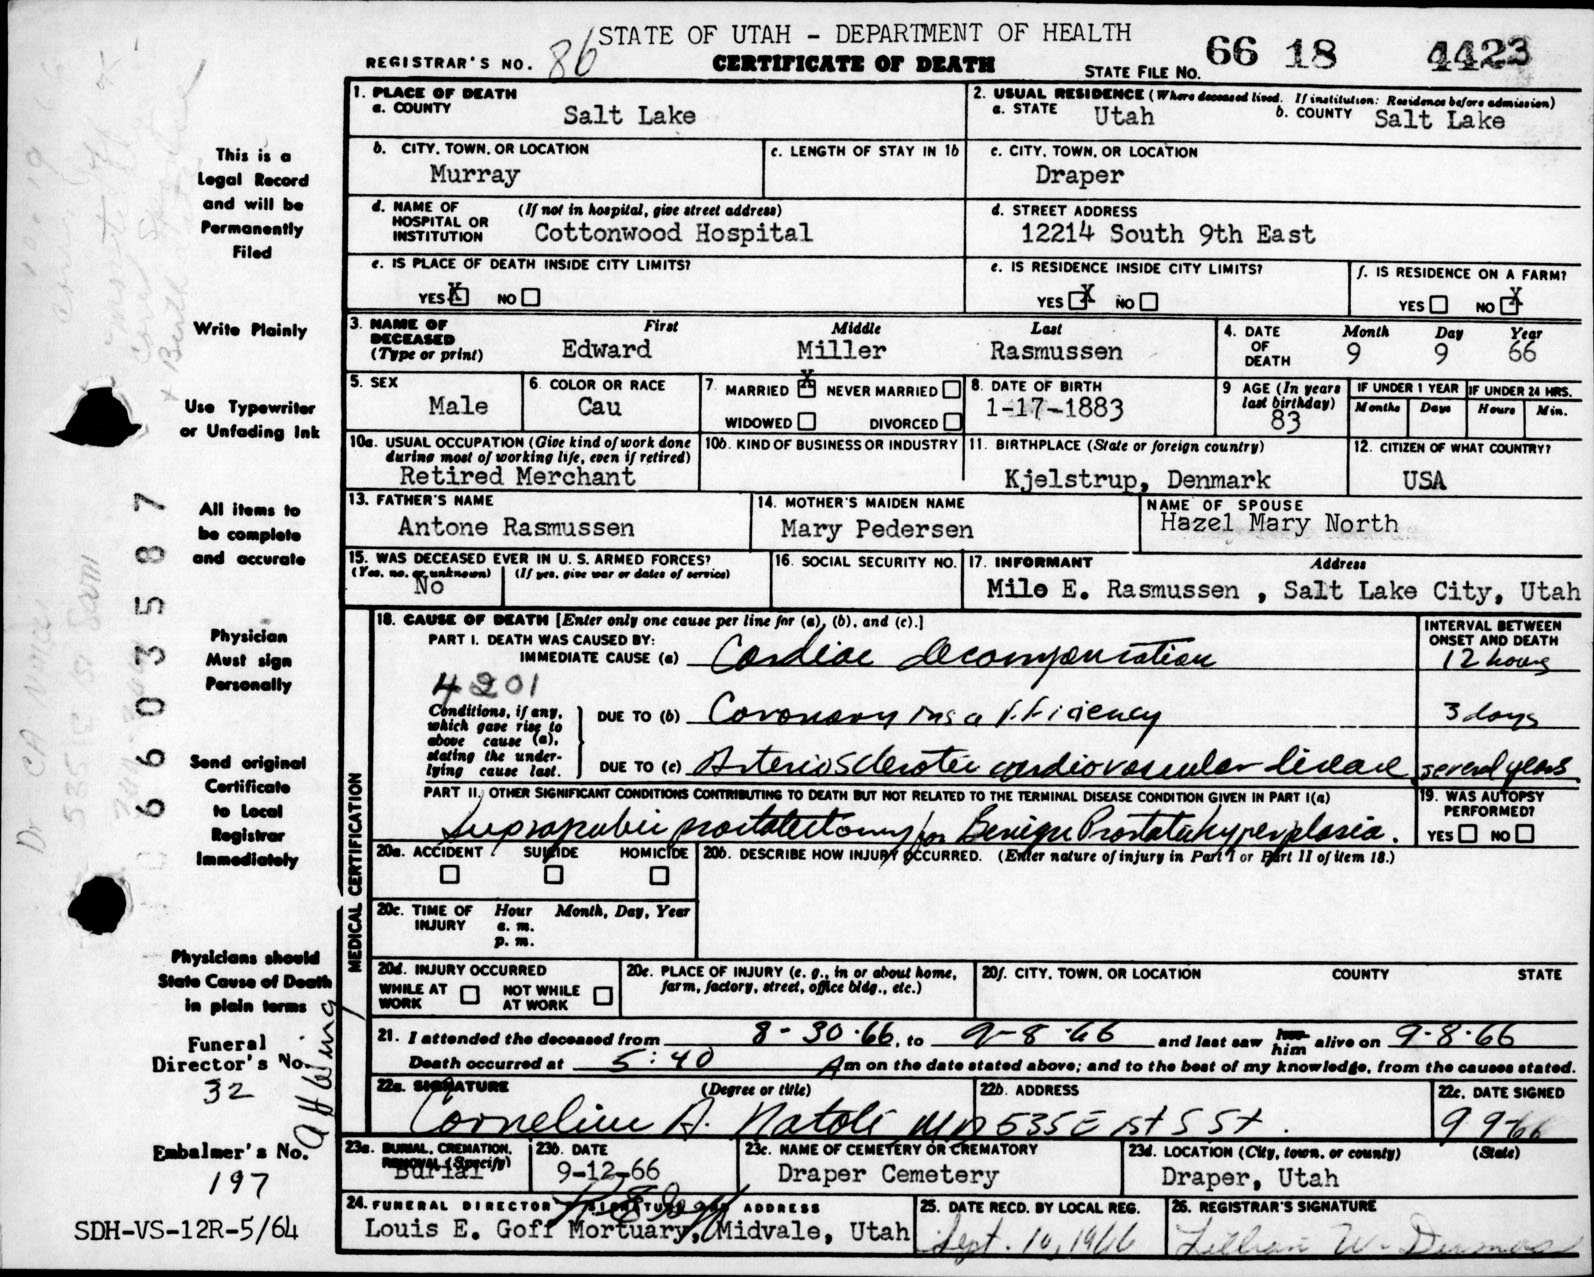 STATE OF UTAH - DEPARTMENT OF HEALTH
REGISTRAR'S NO. 86
CERTIFICATE OF DEATH
STATE FILE NO. 66 18 4423
1. PLACE OF DEATH
a. COUNTY
Salt Lake
2. USUAL RESIDENCE (Where deceased lived. If institution: Residence before admission)
a. STATE Utah b. COUNTY Salt Lake
b. CITY, TOWN, OR LOCATION
Murray
c. LENGTH OF STAY IN 1b
c. CITY, TOWN, OR LOCATION
Draper
d. NAME OF HOSPITAL OR INSTITUTION (If not in hospital, give street address)
Cottonwood Hospital
d. STREET ADDRESS
12214 South 9th East
e. IS PLACE OF DEATH INSIDE CITY LIMITS?
YES X NO
e. IS RESIDENCE INSIDE CITY LIMITS?
YES X NO
f. IS RESIDENCE ON A FARM?
YES NO X
3. NAME OF DECEASED (Type or print)
First Middle Last
Edward Miller Rasmussen
4. DATE OF DEATH
Month Day Year
9 9 66
5. SEX
Male
6. COLOR OR RACE
Cau
7. MARRIED X NEVER MARRIED
WIDOWED DIVORCED
8. DATE OF BIRTH
1-17-1883
9 AGE (In years last birthday)
83
IF UNDER 1 YEAR
Months Days
IF UNDER 24 HRS.
Hours Min.
10a. USUAL OCCUPATION (Give kind of work done during most of working life, even if retired)
Retired Merchant
10b. KIND OF BUSINESS OR INDUSTRY
11. BIRTHPLACE (State or foreign country)
Kjelstrup, Denmark
12. CITIZEN OF WHAT COUNTRY?
USA
13. FATHER'S NAME
Antone Rasmussen
14. MOTHER'S MAIDEN NAME
Mary Pedersen
NAME OF SPOUSE
Hazel Mary North
15. WAS DECEASED EVER IN U. S. ARMED FORCES?
(Yes, no, or unknown) (If yes, give war or dates of service)
No
16. SOCIAL SECURITY NO.
17. INFORMANT Address
Milo E. Rasmussen , Salt Lake City, Utah
MEDICAL CERTIFICATION
18. CAUSE OF DEATH [Enter only one cause per line for (a), (b), and (c).]
INTERVAL BETWEEN ONSET AND DEATH
PART I. DEATH WAS CAUSED BY:
IMMEDIATE CAUSE (a) Cardiac decompensation 12 hours
4201
Conditions, if any, which gave rise to above cause (a), stating the underlying cause last.
DUE TO (b) Coronary insufficiency 3 days
DUE TO (c) Arteriosclerotic cardiovascular disease several years
PART II. OTHER SIGNIFICANT CONDITIONS CONTRIBUTING TO DEATH BUT NOT RELATED TO THE TERMINAL DISEASE CONDITION GIVEN IN PART I(a)
Suprapubic prostatectomy for Benign Prostate hyperplasia.
19. WAS AUTOPSY PERFORMED?
YES NO
20a. ACCIDENT SUICIDE HOMICIDE
20b. DESCRIBE HOW INJURY OCCURRED. (Enter nature of injury in Part I or Part II of item 18.)
20c. TIME OF INJURY Hour Month, Day, Year
a. m.
p. m.
20d. INJURY OCCURRED
WHILE AT WORK NOT WHILE AT WORK
20e. PLACE OF INJURY (e. g., in or about home, farm, factory, street, office bldg., etc.)
20f. CITY, TOWN, OR LOCATION COUNTY STATE
21. I attended the deceased from 8-30-66, to 9-8-66 and last saw him alive on 9-8-66
Death occurred at 5:40 Am on the date stated above; and to the best of my knowledge, from the causes stated.
22a. SIGNATURE (Degree or title)
Cornelius A. Natoli MD
22b. ADDRESS
535 E 1st S St.
22c. DATE SIGNED
9 9-66
23a. BURIAL, CREMATION, REMOVAL (Specify)
Burial
23b. DATE
9-12-66
23c. NAME OF CEMETERY OR CREMATORY
Draper Cemetery
23d. LOCATION (City, town, or county) (State)
Draper, Utah
24. FUNERAL DIRECTOR SIGNATURE AND ADDRESS
Louis E. Goff Mortuary, Midvale, Utah
25. DATE RECD. BY LOCAL REG.
Sept. 10, 1966
26. REGISTRAR'S SIGNATURE
Lillian W.
This is a
Legal Record
and will be
Permanently
Filed
Write Plainly
Use Typewriter
or Unfading Ink
All items to
be complete
and accurate
Physician
Must sign
Personally
Send original
Certificate
to Local
Registrar
Immediately
Physicians should
State Cause of Death
in plain terms
Funeral
Director's No.
32
Embalmer's No.
197
SDH-VS-12R-5/64